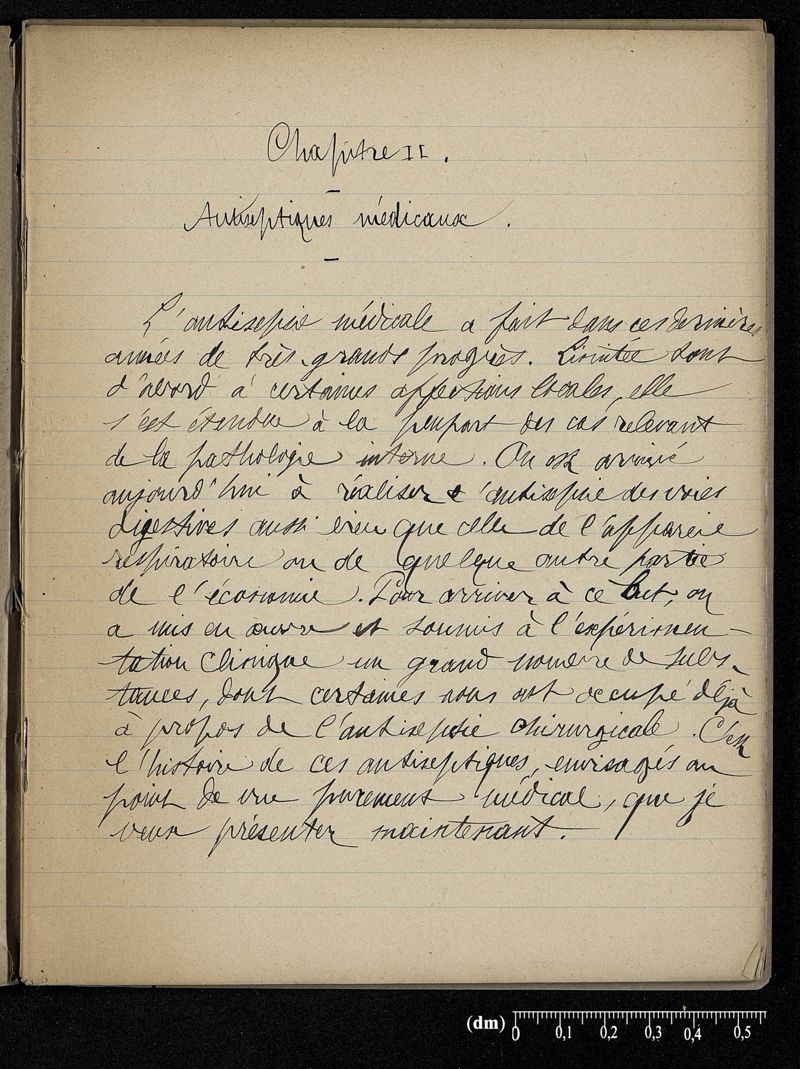 Chapitre II.
Antiseptiques médicaux.
L'antisepsie médicale a fait dans ces dernières
années de très grands progrès. Limitée tout
d'abord à certaines affections locales, elle
s'est étendue à la plupart des cas relevant
de la pathologie interne. On est arrivé
aujourd'hui à réaliser l'antisepsie des voies
digestives aussi bien que celle de l'appareil
respiratoire ou de quelque autre partie
de l'économie. Pour arriver à ce but, on
a mis en œuvre et soumis à l'expérimen-
tation clinique un grand nombre de subs-
tances, dont certaines nous ont occupé déjà
à propos de l'antisepsie chirurgicale. C'est
l'histoire de ces antiseptiques, envisagés au
point de vue purement médical, que je
veux présenter maintenant.
(dm) 0 0,1 0,2 0,3 0,4 0,5